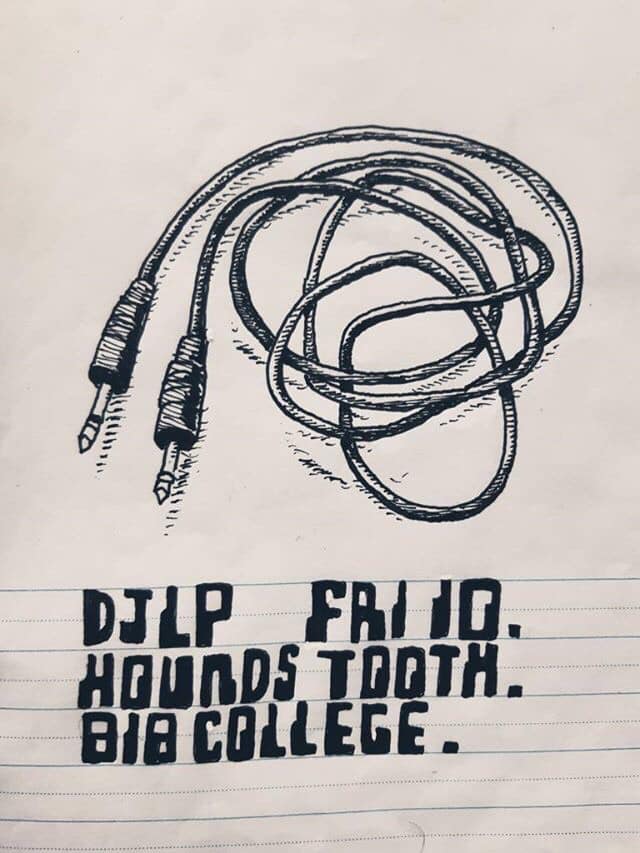 DJLP FRI 10.
HOUNDS TOOTH.
818 COLLEGE.